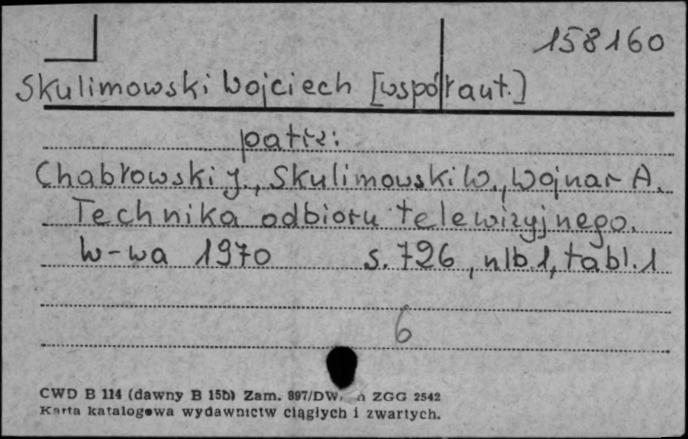 158160
Skulimowski Wojciech [współaut.]
patrz:
Chabłowski J., Skulimowski W., Wojnar A.
Technika odbioru telewizyjnego.
W-wa 1970 s. 726, nlb. 1, tabl. 1
6
CWD B 114 (dawny B 15b) Zam. 897/DW, ZGG 2542
Karta katalogowa wydawnictw ciągłych i zwartych.